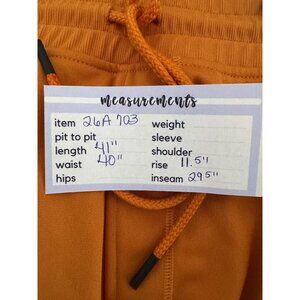 measurements
item 26A 703 weight
pit to pit sleeve
length 41" shoulder
waist 40" rise 11.5"
hips inseam 29.5"